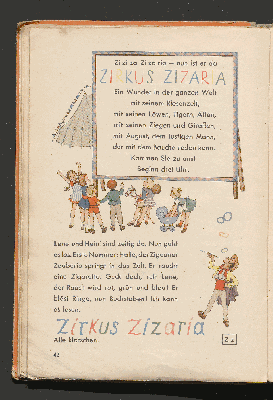 Zi za Zizaria – nun ist er da
ZIRKUS ZIZARIA
Ein Wunder in der ganzen Welt
mit seinem Riesenzelt,
mit seinen Löwen, Tigern, Affen,
mit seinen Ziegen und Giraffen,
mit August, dem lustigen Mann,
der mit dem Bauche reden kann.
Kommen Sie zu uns!
Beginn drei Uhr.
Lene und Heini sind zeitig da. Nun geht
es los. Erste Nummer: Halle, der Zigeuner
Zauberio springt in das Zelt. Er raucht
eine Zigarette. Guck doch, ruft Lene,
der Rauch wird rot, grün und blau! Er
bläst Ringe, nun Buchstaben! Ich kann
es lesen.
ZIRKUS ZIZARIA
Alle klatschen.
42
Z z